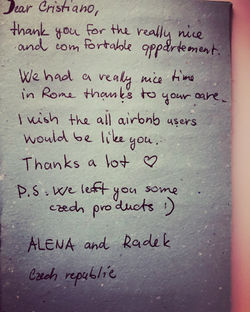 Dear Cristiano,
thank you for the really nice
and comfortable appartement.
We had a really nice time
in Rome thanks to your care.
I wish the all airbnb users
would be like you.
Thanks a lot ♡
P.S. We left you some
czech products :)
ALENA and Radek
Czech republic